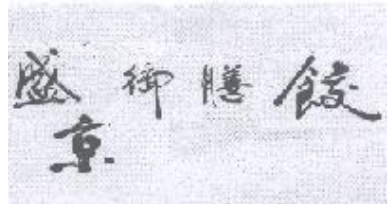 盛京御膳餃